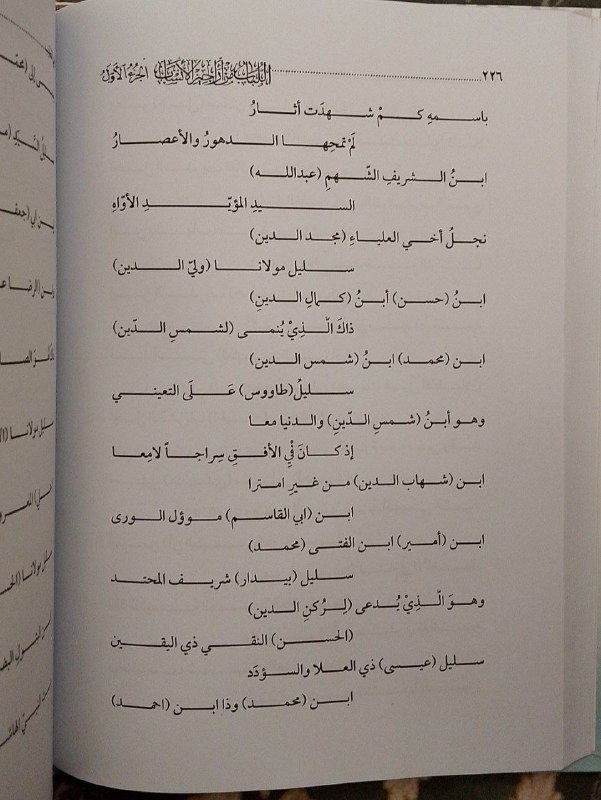 ٢٢٦ اللباب من تراجم الأنساب الجزء الأول
باسمهِ كمْ شهدَت أثارُ
لَمْ تمحِها الدهورُ والأعصارُ
ابنُ الشريفِ الشّهمِ (عبدالله)
السيدِ المؤيّدِ الأوّاهِ
نجلُ أخي العلياءِ (مجد الدين)
سليل مولانا (وليّ الدين)
ابنُ (حسن) أبنُ (كمالِ الدينِ)
ذاكَ الّذِيْ يُنمى (لشمسِ الدّين)
ابن (محمد) ابنُ (شمس الدين)
سليلُ (طاووس) عَلَى التعيني
وهو أبنُ (شمسِ الدّينِ) والدنيا معا
إذ كانَ فيْ الأفقِ سِراجاً لامِعا
ابن (شهاب الدين) من غيرِ امترا
ابن (ابي القاسم) موؤل الورى
ابن (أمير) ابن الفتى (محمد)
سليل (بيدار) شريف المحتد
وهوَ الّذِيْ يُدعى (لِركنِ الدين)
(الحسن) النقي ذي اليقين
سليل (عيسى) ذي العلا والسؤدَد
ابن (محمد) وذا ابن (احمد)